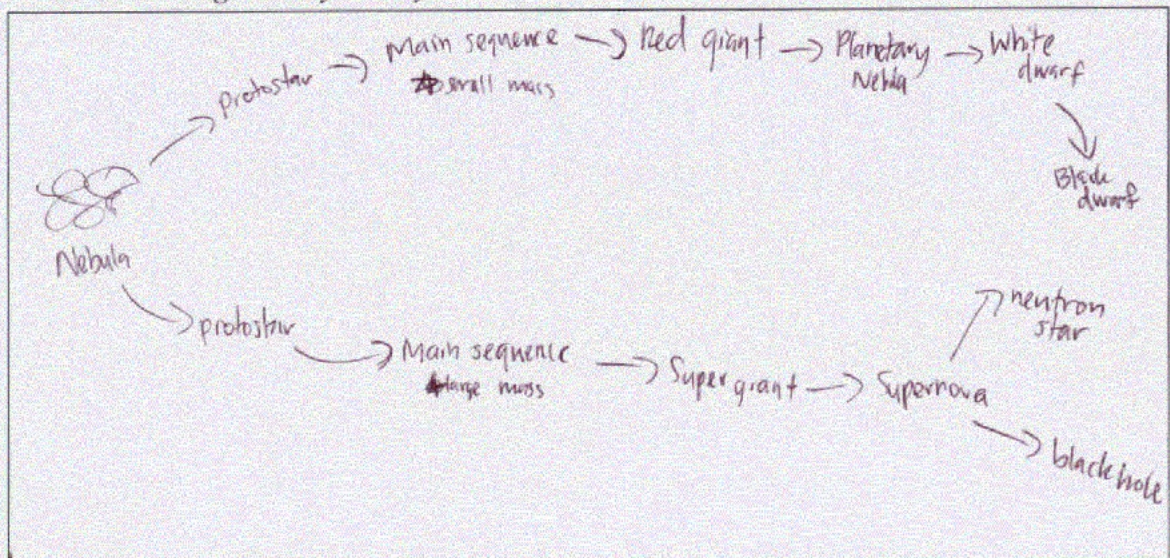 protostar
Main sequence
small mass
Red giant
Planetary
Nebla
White
dwarf
Black
dwarf
Nebula
protostar
Main sequence
large mass
Super giant
Supernova
neutron
star
black hole